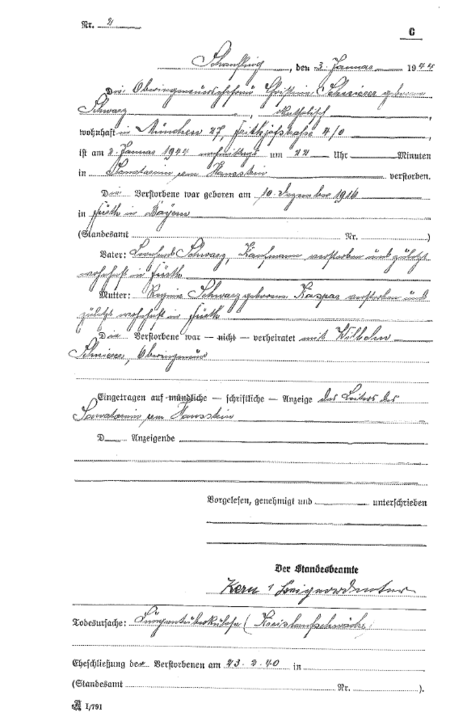 Nr. 2
C
Schaufling, den 3. Januar 1944
Die Oberingenieursehefrau Christine Schnierer geborene
Schwarz, katholisch,
wohnhaft in München 27, 4/0,
ist am 2. Januar 1944 nachmittags um 22 Uhr Minuten
in Sanatorium am Hausstein verstorben.
Die Verstorbene war geboren am 10. Dezember 1916
in Fürth in Bayern
(Standesamt Nr. )
Vater: Leonhard Schwarz, Kaufmann verstorben und zuletzt
wohnhaft in Fürth
Mutter: Regina Schwarz geborene Kaspar verstorben und
zuletzt wohnhaft in Fürth
Die Verstorbene war — nicht — verheiratet mit Wilhelm
Schnierer, Oberingenieur
Eingetragen auf mündliche — schriftliche — Anzeige des Leiters des
Sanatorium am Hausstein
D Anzeigende
Vorgelesen, genehmigt und unterschrieben
Der Standesbeamte
Kern, Beigeordneter
Todesursache: Lungentuberkulose (Kreislaufschwäche)
Eheschließung der Verstorbenen am 23.2.40 in
(Standesamt Nr. ).
I/791